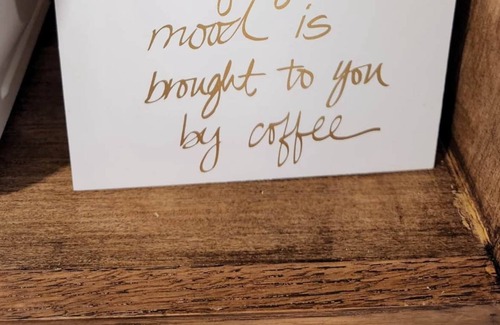 mood is
brought to you
by coffee